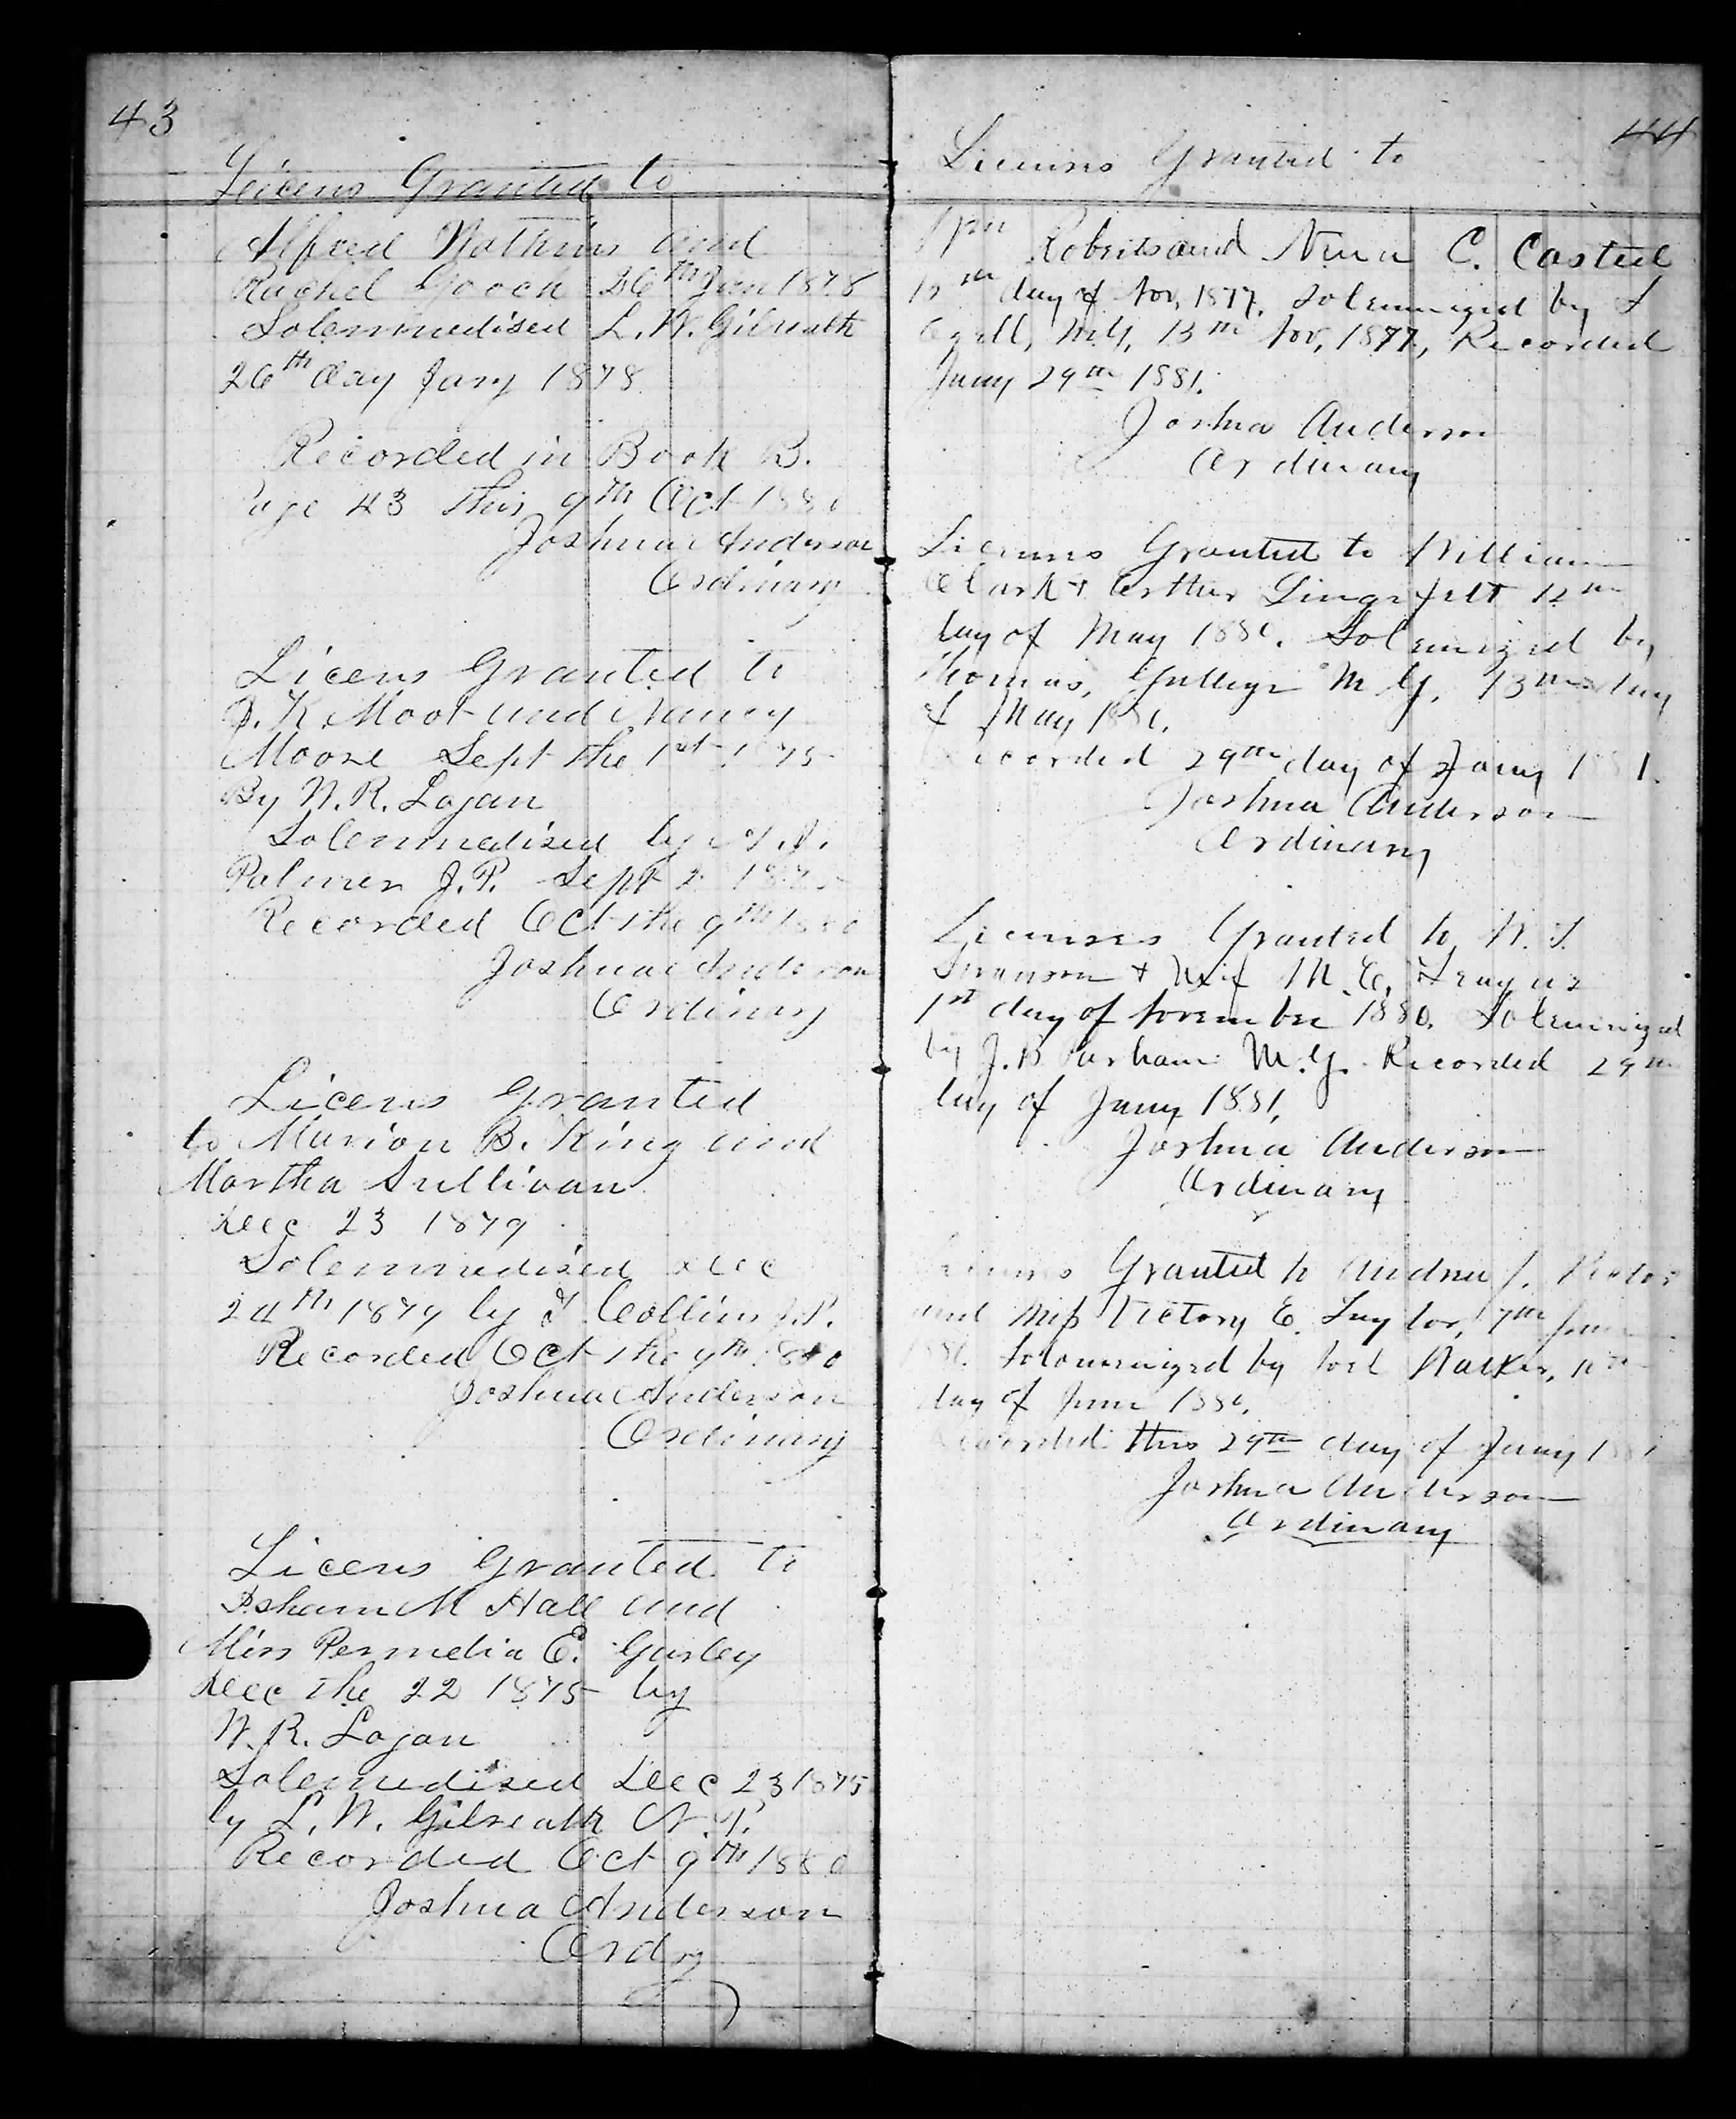 43
Licens Granted to
Alfred Wathins and
Rachel Gooch 26th Jan 1878
Solemmedised L. W. Gilreath
26th day Jany 1878
Recorded in Book B.
Page 43 this 9th Oct 1880
Joshua Anderson
Ordinary
Licens Granted to
J. K. Moot and Nancy
Moore Sept the 1st 1875
By W. R. Logan
Solemmedised by
Palmer J.P. Sept 2 1875
Recorded Oct the 9th 1880
Joshua Anderson
Ordinary
Licens Granted
to Marion B. King and
Martha Sullivan
Dec 23 1879
Solemmedised Dec
24th 1879 by J. Collins J.P.
Recorded Oct the 9th 1880
Joshua Anderson
Ordinary
Licens Granted to
Isham M Hall and
Miss Permelia E. Gurley
Dec the 22 1875 by
W. R. Logan
Solemedised Dec 23 1875
by L. W. Gilreath
Recorded Oct 9th 1880
Joshua Anderson
Ordy
44
Licenses Granted to
Roberts and C. Casteel
day of Nov, 1877, Solemnized by
M.G, 13th Nov, 1877, Recorded
Jany 29th 1881.
Joshua Anderson
Ordinary
Licenses Granted to William
Clark + Esther Lingerfelt 12th
day of May 1880. Solemnized by
Thomas, M.G. 13th day
of May 1880.
Recorded 29th day of Jany 1881.
Joshua Anderson
Ordinary
Licenses Granted to W. T.
Swanson + M. E.
1st day of November 1880. Solemnized
by J. B Parham M.G. Recorded 29th
day of Jany 1881.
Joshua Anderson
Ordinary
Licenses Granted to Andrew J. Rector
and Miss Victory E. Taylor, 7th June
1880. Solomnized by Joel Walker, 10th
day of June 1880.
Recorded this 29th day of Jany 1881
Joshua Anderson
Ordinary